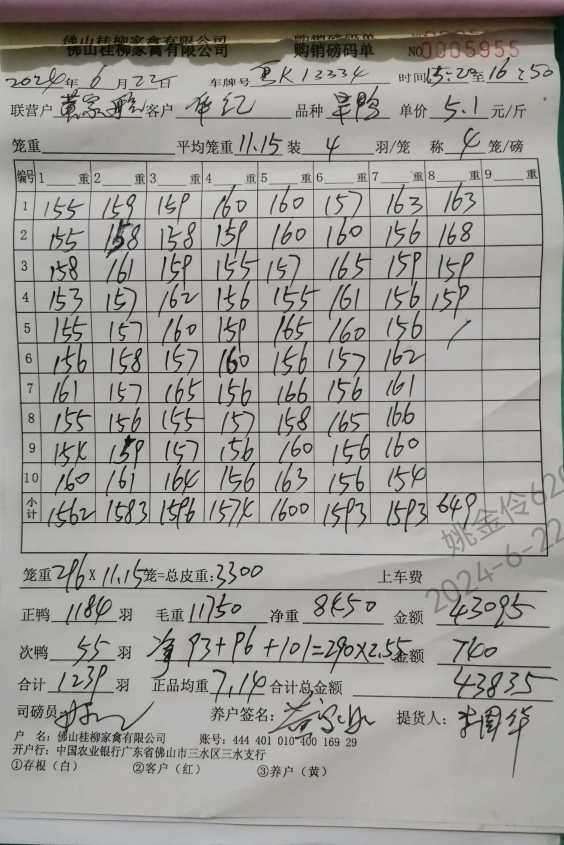 佛山桂柳家禽有限公司 购销磅码单
佛山桂柳家禽有限公司 购销磅码单 NO0005955
2024年6月22日 车牌号 K12334 时间15:20至16:50
联营户 黄 客户 品种 旱鸭 单价 5.1 元/斤
笼重 平均笼重 11.15 装 4 羽/笼 称 4 笼/磅
编号 1 重 2 重 3 重 4 重 5 重 6 重 7 重 8 重 9 重
1 155 159 159 160 160 157 163 163
2 155 158 158 159 160 160 156 168
3 158 161 159 155 157 165 159 159
4 153 157 162 156 155 161 156 159
5 155 157 160 159 165 160 156 /
6 156 158 157 160 156 157 162
7 161 157 165 156 166 156 161
8 155 156 155 157 158 165 166
9 154 159 157 156 160 156 160
10 160 161 164 156 163 156 154
小计 1562 1583 1596 1574 1600 1593 1593 649
笼重 296 X 11.15 笼=总皮重: 3300 上车费
正鸭 1184 羽 毛重 11750 净重 8450 金额 43095
次鸭 55 羽 净 93+96+101=290×2.55 金额 740
合计 1239 羽 正品均重 7.14 合计总金额 43835
司磅员 养户签名: 提货人: 李国华
户 名: 佛山桂柳家禽有限公司 账号: 444 401 010 400 169 29
开户行: 中国农业银行广东省佛山市三水区三水支行
①存根（白） ②客户（红） ③养户（黄）
姚金伶629
2024-6-22